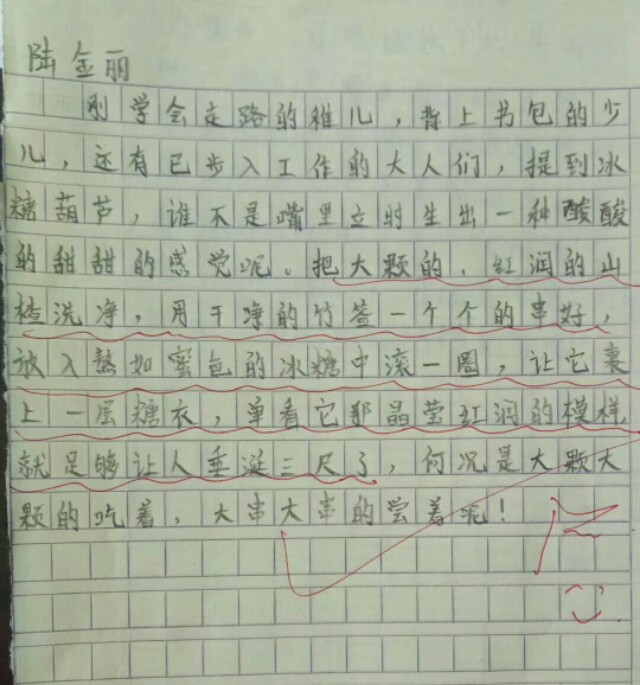 陆金丽
刚学会走路的稚儿，背上书包的少
儿，还有已步入工作的大人们，提到冰
糖葫芦，谁不是嘴里立时生出一种酸酸
的甜甜的感觉呢。把大颗的、红润的山
楂洗净，用干净的竹签一个个的串好，
放入熬如蜜色的冰糖中滚一圈，让它裹
上一层糖衣，单看它那晶莹红润的模样
就足够让人垂涎三尺了，何况是大颗大
颗的吃着，大串大串的尝着呢！